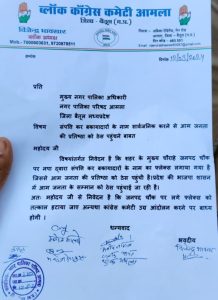 ब्लॉक काँग्रेस कमेटी आमला
जिला - बैतूल (म.प्र.)
विजेन्द्र भावसार
ब्लाक अध्यक्ष
प्रति
मुख्य नगर पालिका अधिकारी
नगर पालिका परिषद आमला
जिला बैतूल मध्यप्रदेश
विषय संपत्ति कर बकायादारों के नाम सार्वजनिक करने से आम जनता
की प्रतिष्ठा को ठेस पहुंचने बाबत
महोदय जी
विषयांतर्गत निवेदन है कि शहर के मुख्य चौराहे जनपद चौक
पर नपा द्वारा संपत्ति कर बकायादारों के नाम का फ्लेक्स लगाया गया है
जिससे आम जनता की प्रतिष्ठा को ठेस पहुंची है।प्रदेश की भाजपा शासन
में आम जनता के सम्मान को ठेस पहुंचाई जा रही है।
अतः महोदय जी से निवेदन है कि जनपद चौक पर लगे फ्लेक्स को
तत्काल हटाया जाय अन्यथा कांग्रेस कमेटी उग्र आंदोलन करने पर बाध्य
होगी ।
धन्यवाद
भवदीय